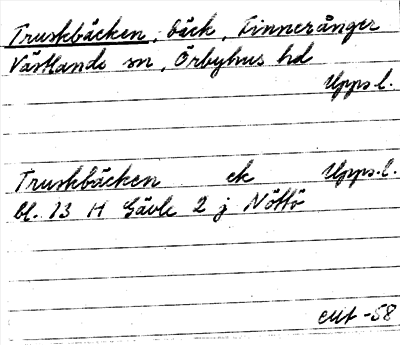 Truskbäcken, bäck, Finneränger
Västlands sn, Örbyhus hd
Upps.l.
Truskbäcken ek Upps.l.
bl. 13 H Gävle 2 j Nöttö
CMt -58